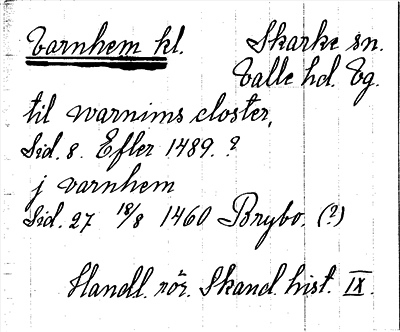 Varnhem kl. Skarke sn.
Valle hd. Vg.
til warnims closter,
Sid. 8. Efter 1489. ?
j varnhem
Sid. 27 18/8 1460 Brybo. (?)
Handl. rör. Skand. hist. IX.